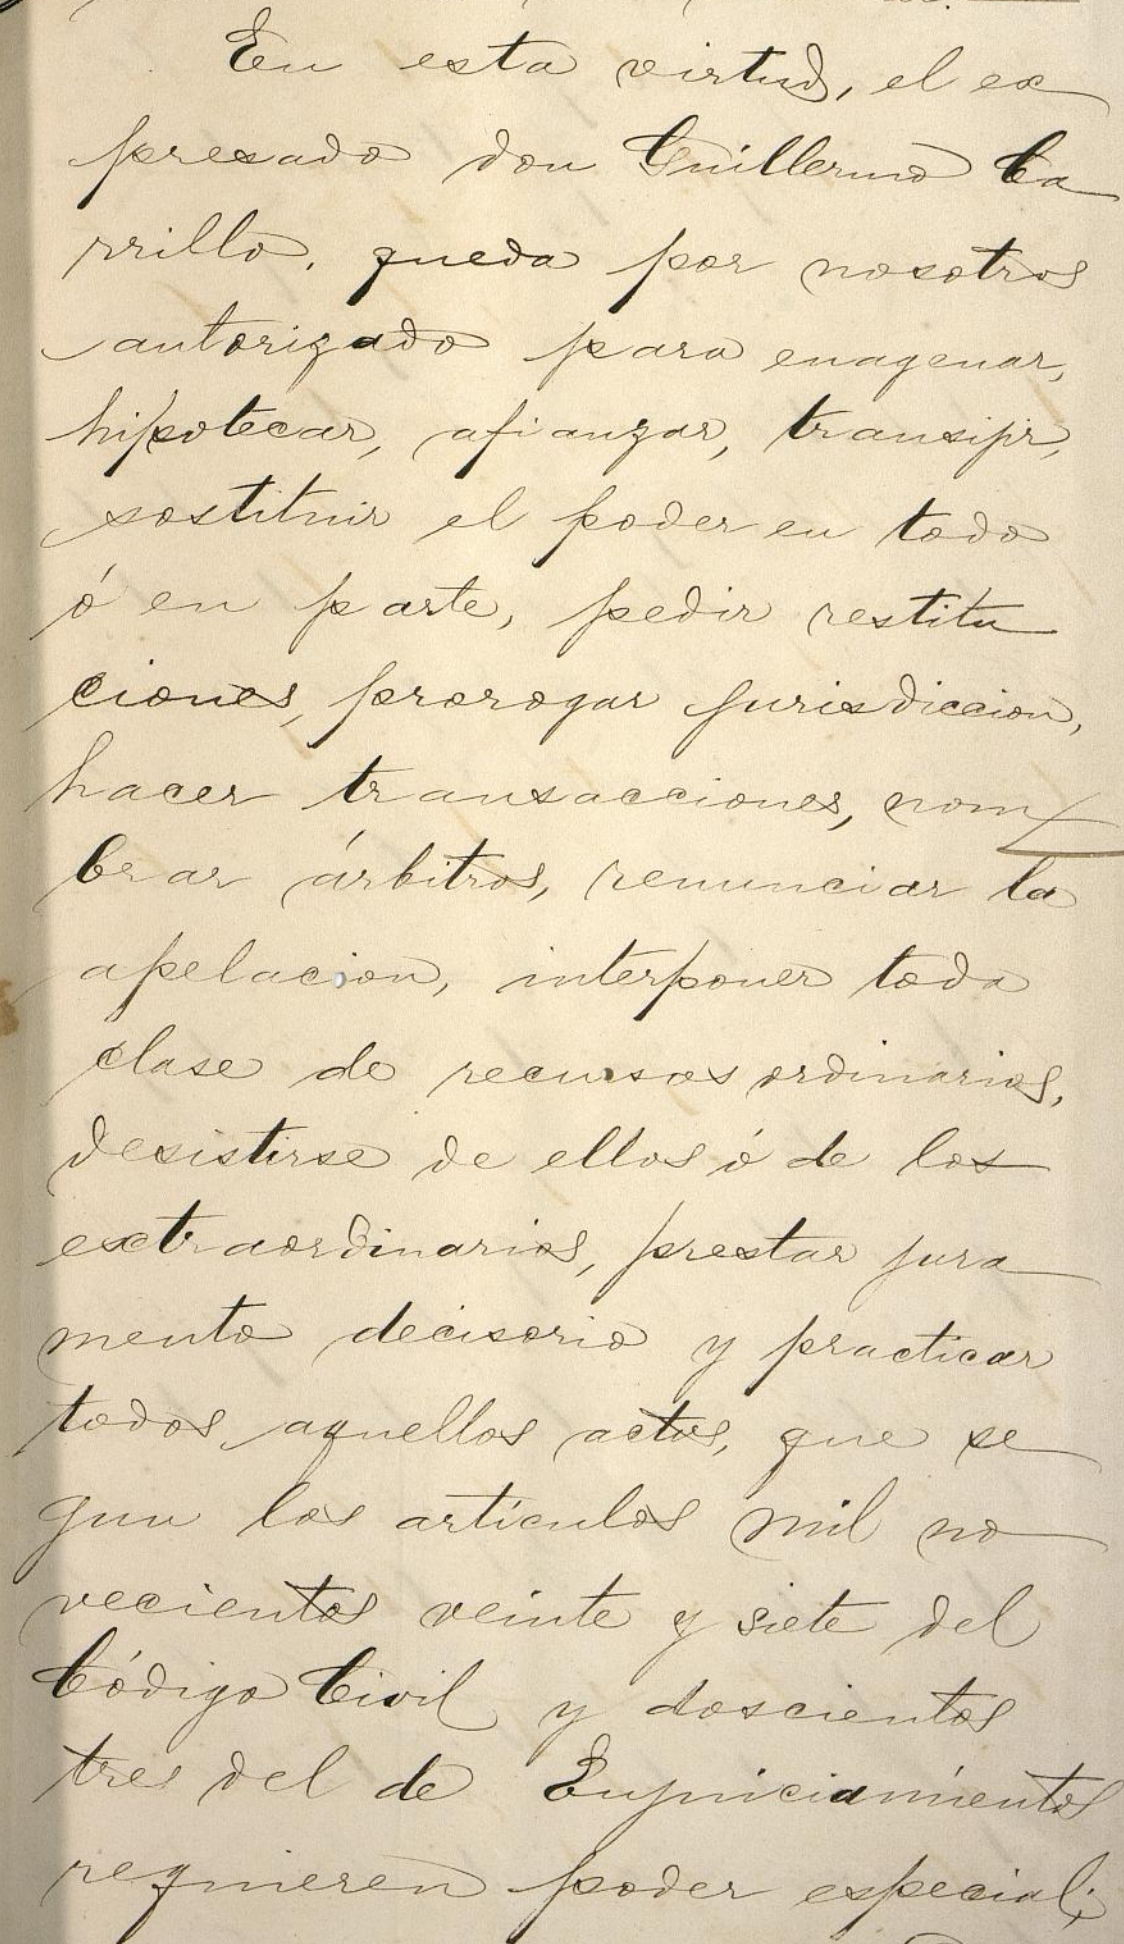 En esta virtud, el ex
presado don Guillermo Ca
rrillo, queda por nosotros
autorizado para enagenar,
hipotecar, afianzar, transijir,
sostituir el poder en todo
ó en parte, pedir restitu
ciones, prorogar jurisdiccion,
hacer transacciones, nom
brar árbitros, renunciar la
apelacion, interponer toda
clase de recursos ordinarios,
desistirse de ellos ó de los
extraordinarios, prestar jura
mento decisorio y practicar
todos aquellos actos, que se
gun los artículos mil no
vecientos veinte y siete del
Código Civil y doscientos
tres del de Enjuiciamientos
requieren poder especial;